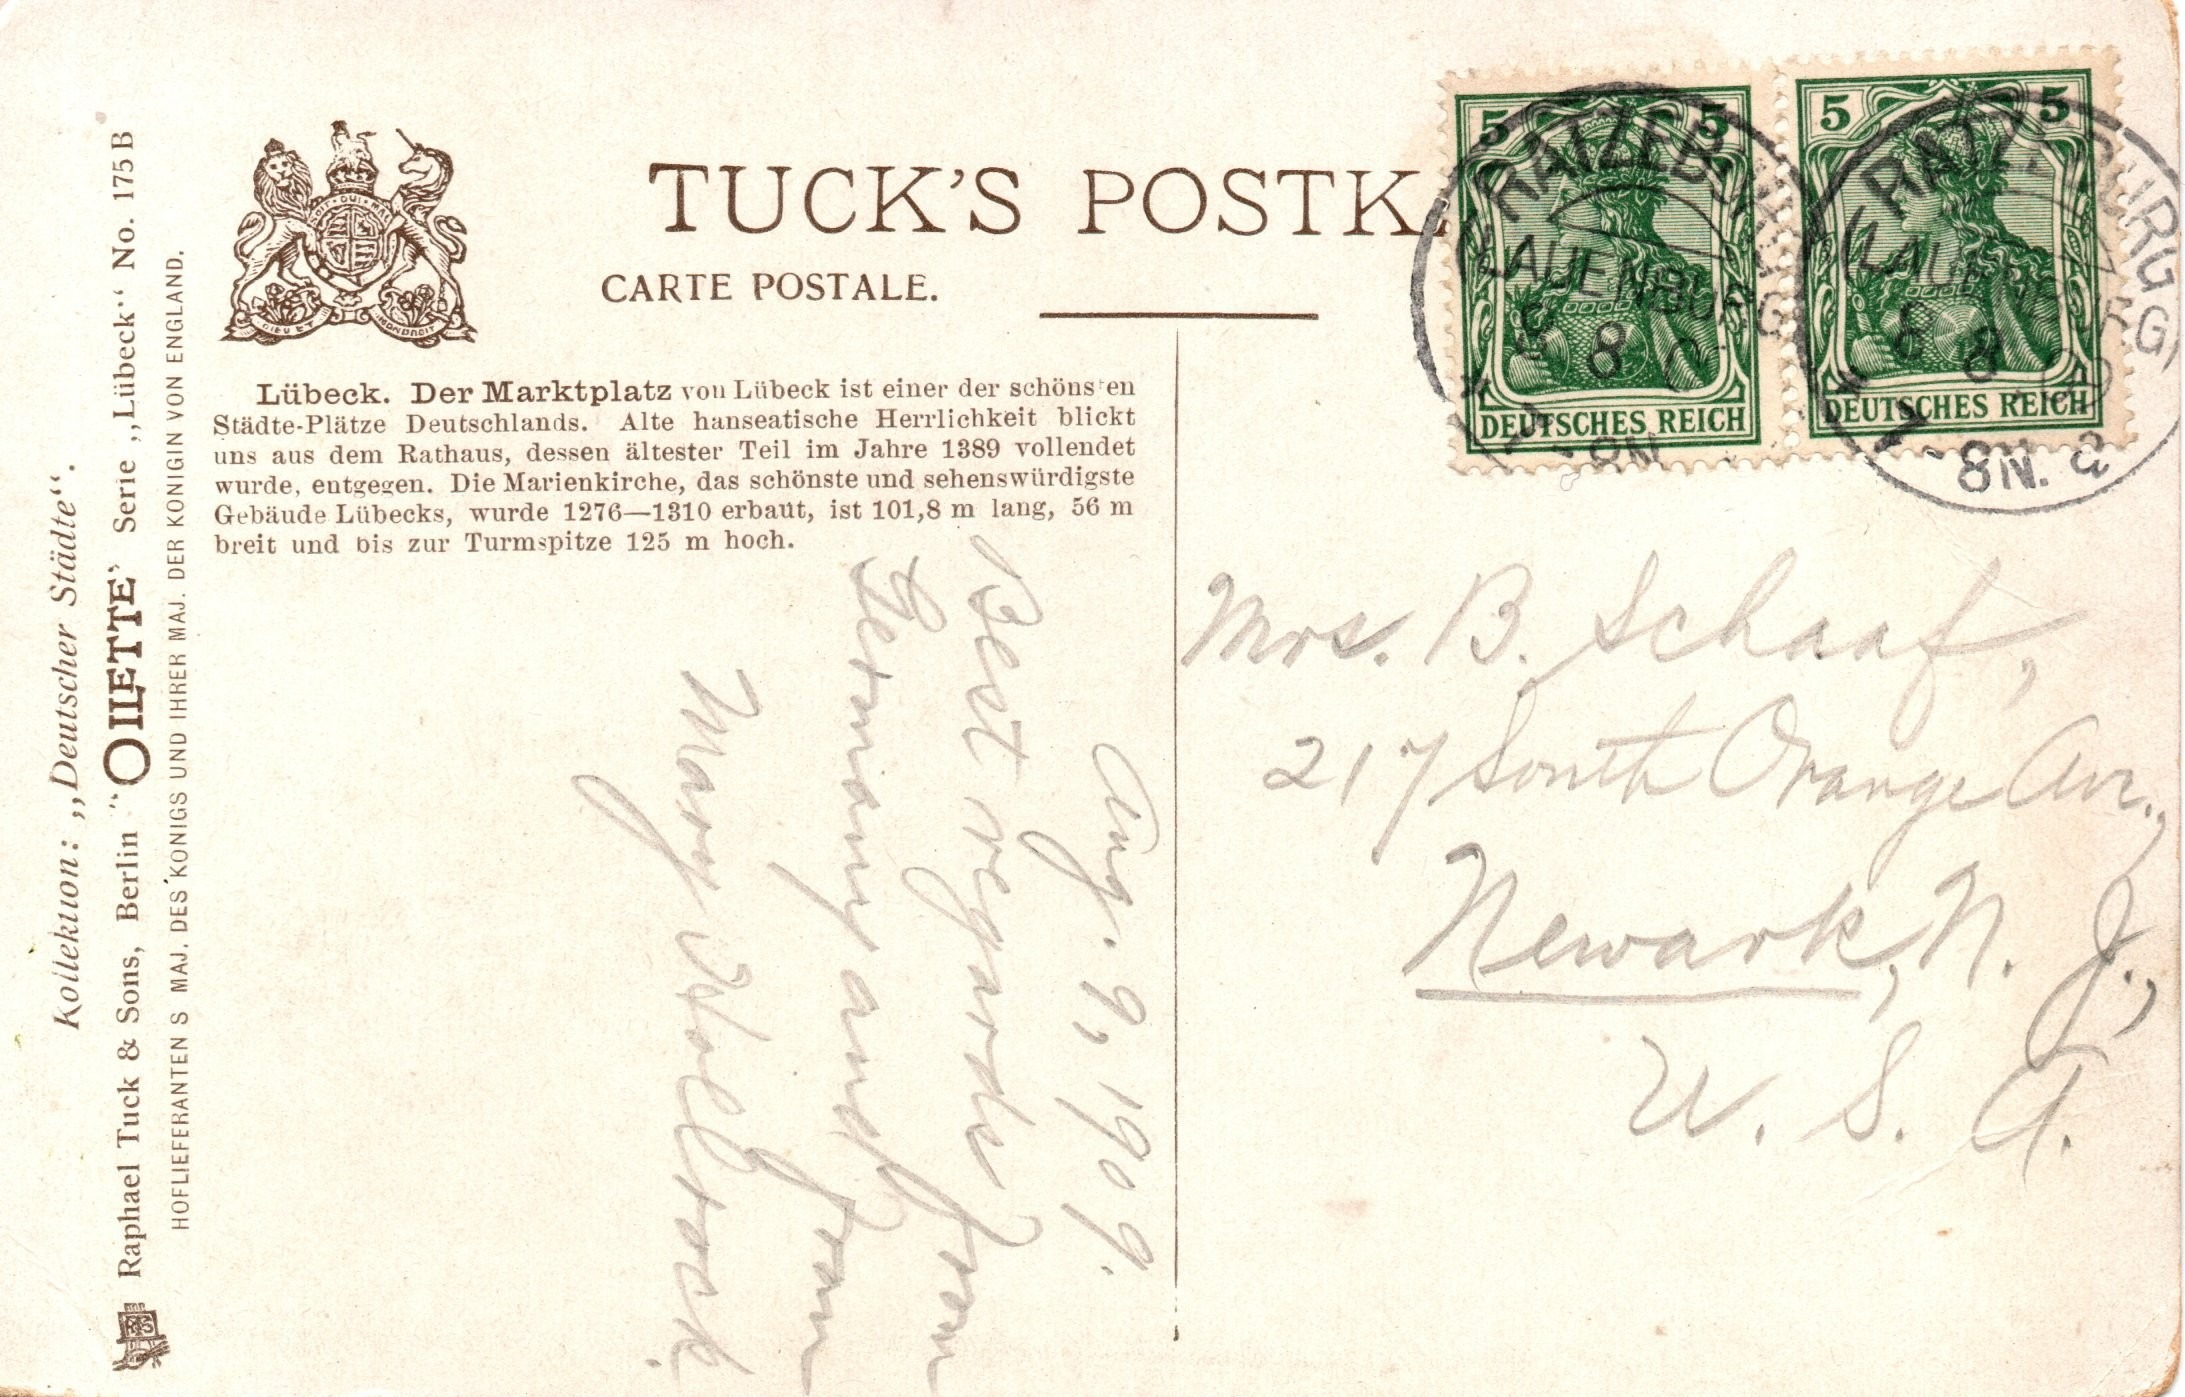 TUCK'S POSTK
CARTE POSTALE.
Lübeck. Der Marktplatz von Lübeck ist einer der schönsten
Städte-Plätze Deutschlands. Alte hanseatische Herrlichkeit blickt
uns aus dem Rathaus, dessen ältester Teil im Jahre 1389 vollendet
wurde, entgegen. Die Marienkirche, das schönste und sehenswürdigste
Gebäude Lübecks, wurde 1276—1310 erbaut, ist 101,8 m lang, 56 m
breit und bis zur Turmspitze 125 m hoch.
Kollektion: „Deutscher Städte“.
Raphael Tuck & Sons, Berlin "OILETTE" Serie „Lübeck“ No. 175 B
HOFLIEFERANTEN S MAJ. DES KÖNIGS UND IHRER MAJ. DER KÖNIGIN VON ENGLAND.
Aug. 9, 1909.
Best regards from
Germany and from
Mary
5 5
DEUTSCHES REICH
5 5
DEUTSCHES REICH
RATZEBURG
(LAUENBURG)
8 8
7-8N
RATZEBURG
(LAUENBURG)
8 8 09
7-8N.
Mrs. B. Schaaf,
217 South Orange Av.,
Newark, N. J.,
U. S. A.